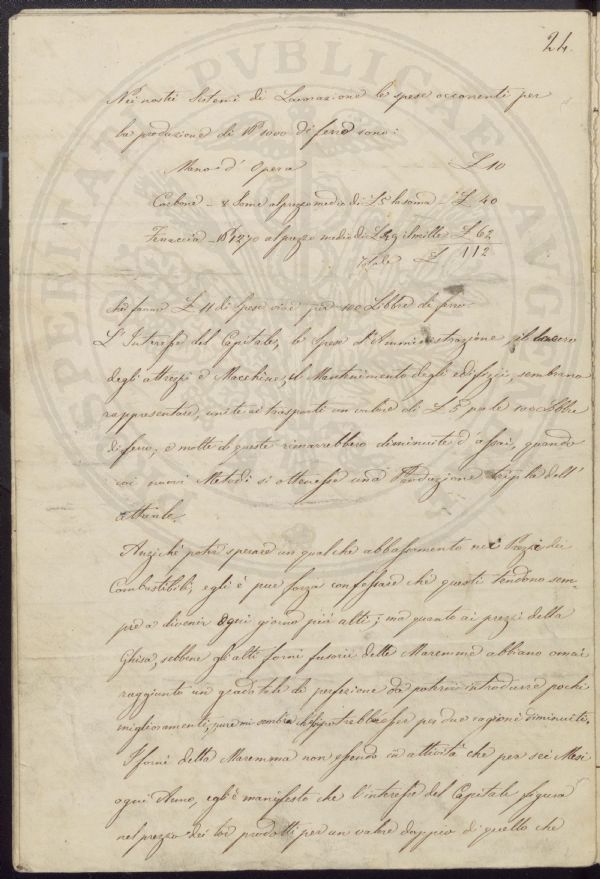 24.
PROSPERITATI PVBLICAE AVGENDAE
Nei nostri Sistemi di Lavorazione le spese occorrenti per
la produzione di lb 1000 di ferro sono:
Mano d' Opera £ 10
Carbone - 8 some al prezzo medio di £5 la soma - £ 40
Ferraccia - lb 1270 al prezzo medio di £ 49 il mille £ 62
Totale £ 112
che fanno £ 11 di Spese vive per 100 Libbre di ferro.
L'Interesse del Capitale, le Spese d'Amministrazione, il
degli attrezzi e Macchine, il Mantenimento degli edifizj, sembrano
rappresentare, unite ai trasporti un valore di £ 5 per le 100 Libbre
di ferro; e molte di queste rimarrebbero diminuite d'assai, quando
coi nuovi Metodi si ottenesse una Produzione tripla dell'
attuale.
Anziché poter sperare un qualche abbassamento nei Prezzi dei
Combustibili, egli è pur forza confessare che questi tendono sem-
pre a divenir ogni giorno più alti; ma quanto ai prezzi della
Ghisa, sebbene gli alti forni fusorii delle Maremme abbiano omai
raggiunto un grado tale di perfezione da potervi introdurre pochi
miglioramenti, pure mi sembra che potrebbero esser per due ragioni diminuiti.
I forni della Maremma non essendo in attività che per sei Mesi
ogni Anno, egli è manifesto che l'interesse del Capitale figura
nel prezzo dei lor prodotti per un valore doppio di quello che